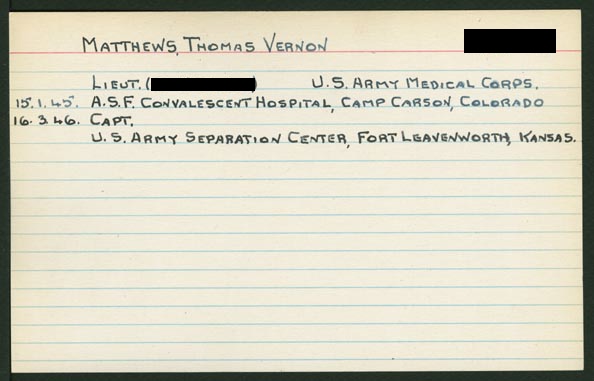 MATTHEWS, THOMAS VERNON
LIEUT. ( ) U.S. ARMY MEDICAL CORPS.
15.1.45. A.S.F. CONVALESCENT HOSPITAL, CAMP CARSON, COLORADO
16.3.46. CAPT.
U.S. ARMY SEPARATION CENTER, FORT LEAVENWORTH, KANSAS.